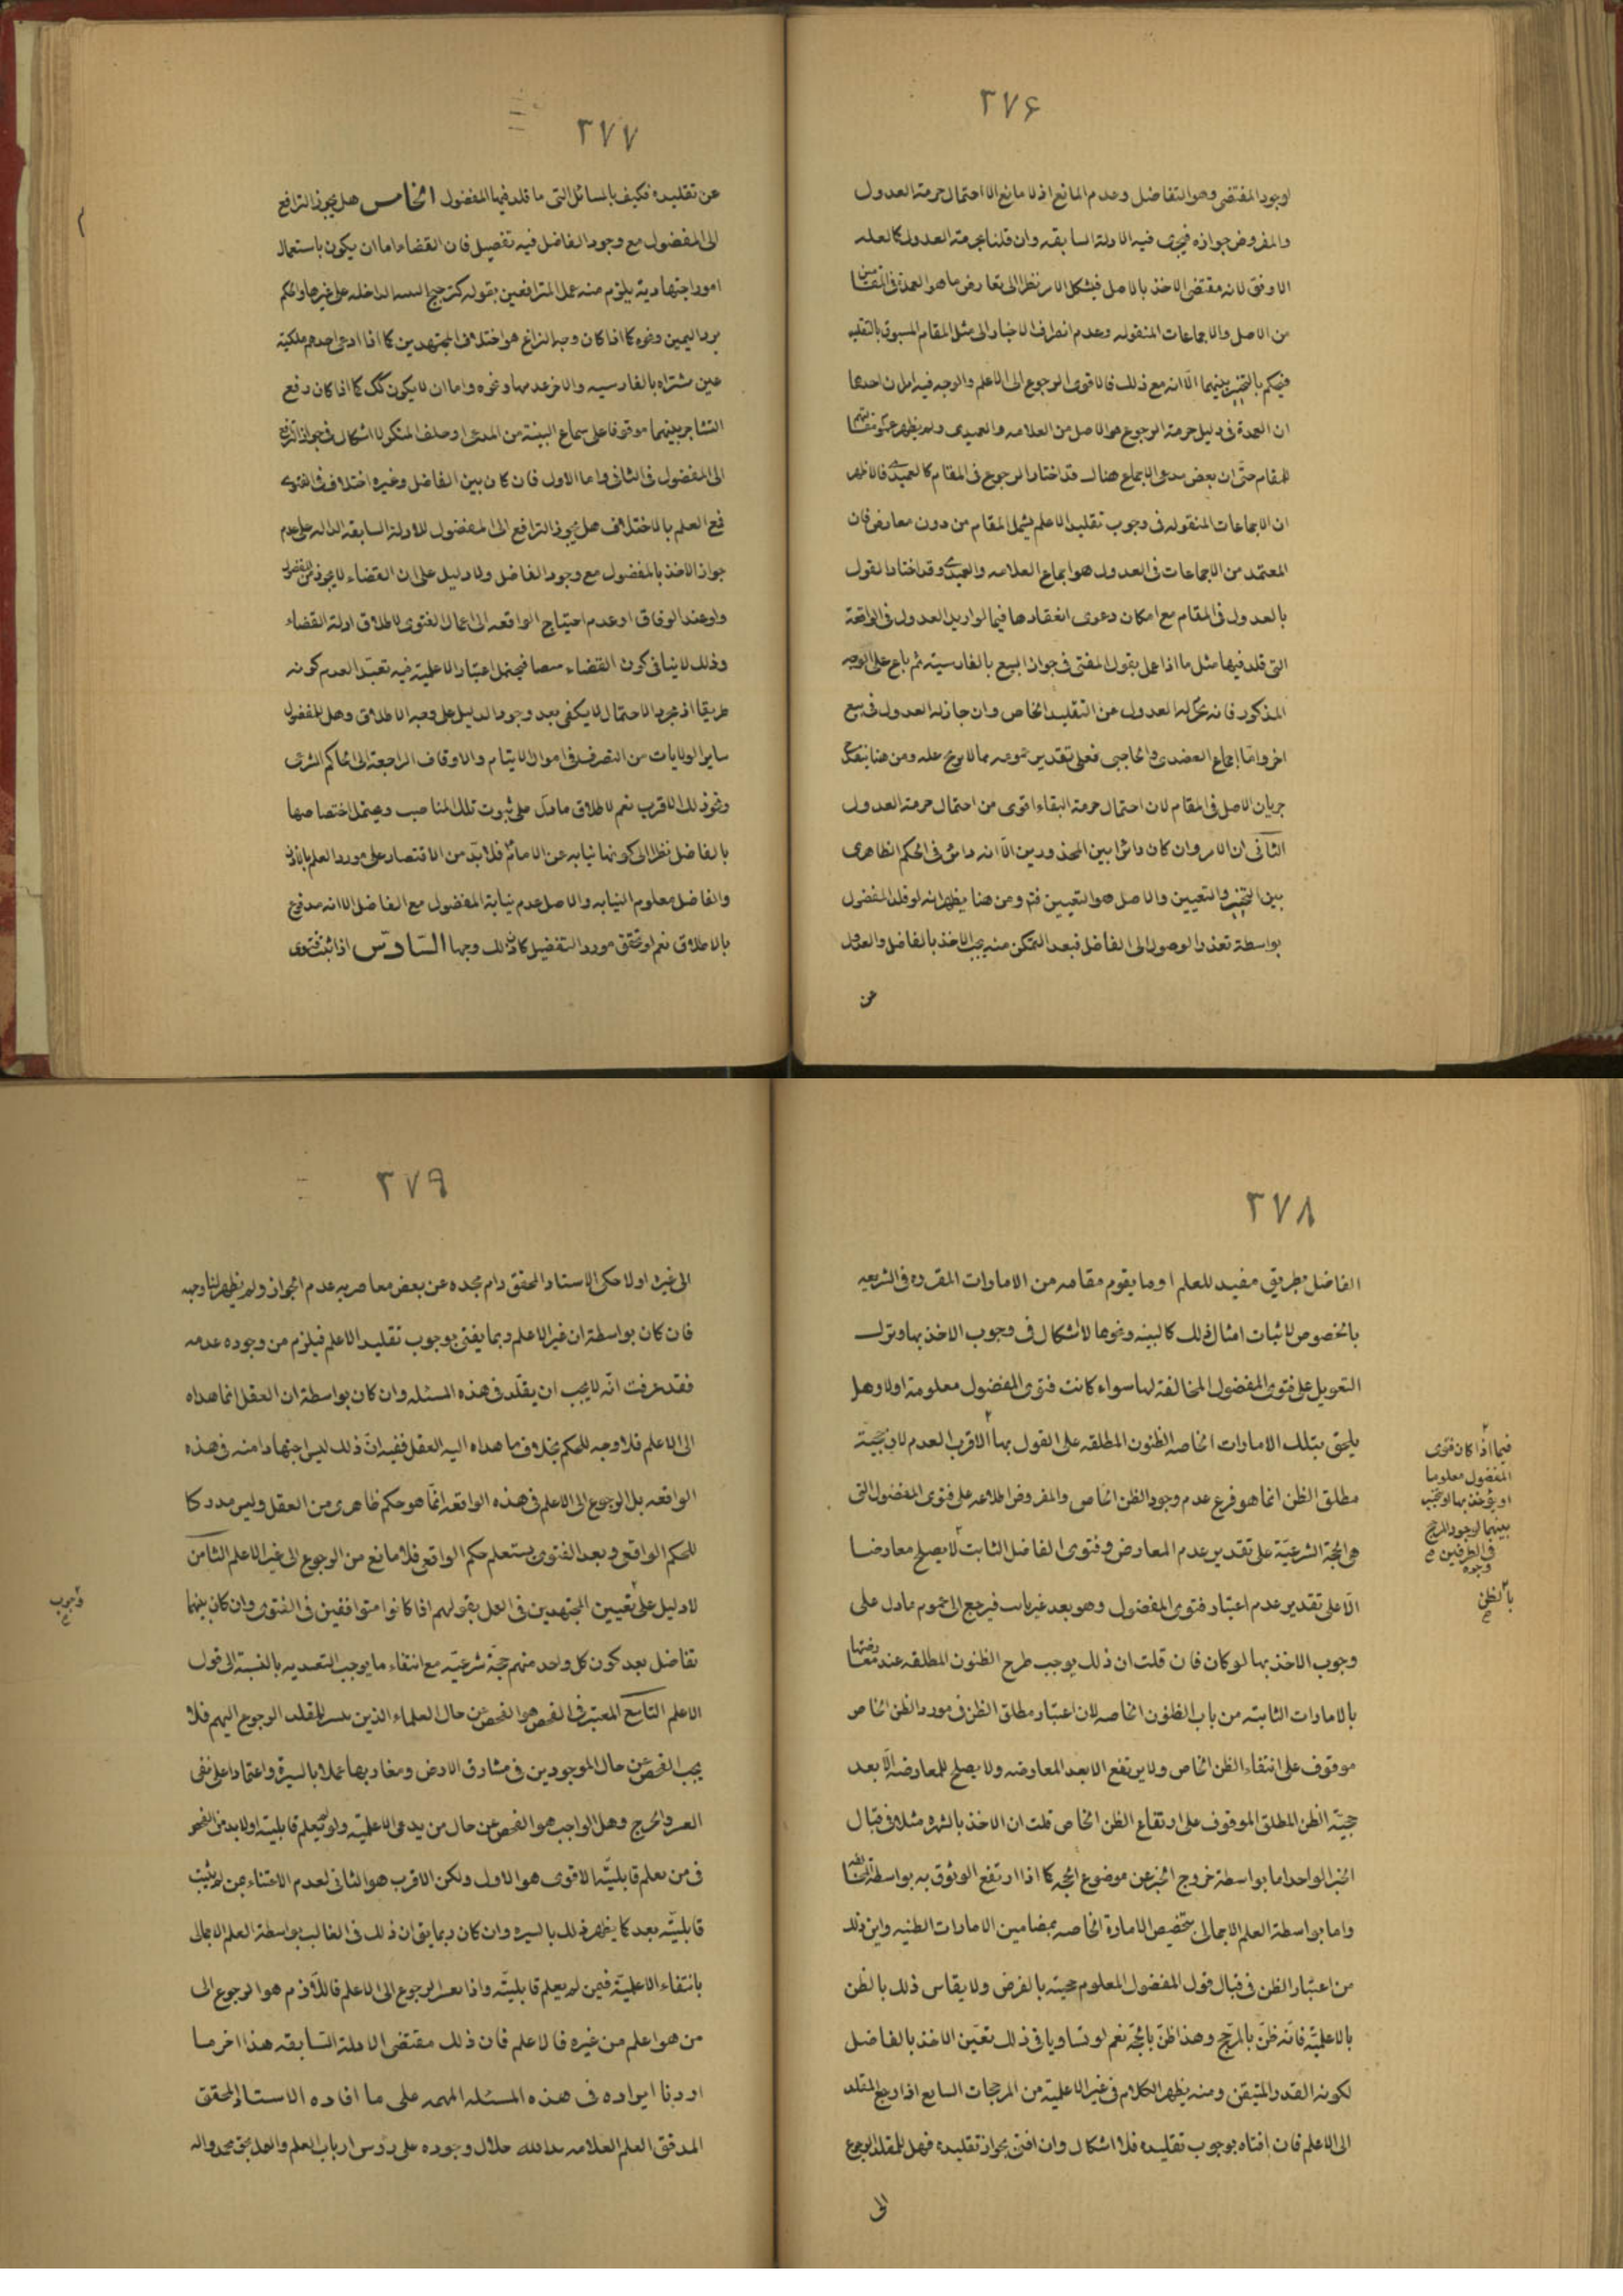 ٣٧۶
لوجود المقتضى وهو التفاضل وعدم المانع اذ لا مانع الا احتمال حرمة العدول
والمفروض جوازه فيجرى فيه الادلة السابقه وان قلنا بحرمة العدول كما لعله
الاوفق لانه مقتضى الاخذ بالاصل فيشكل الامر نظرا الى تعارض ما هو العمدة فى المقامين
من الاصل والاجماعات المنقوله وعدم انصراف الاخبار الى مثل المقام المسبوق بالتقليد
فيحكم بالتخيير بينهما الّا انه مع ذلك فالاقوى الرجوع الى الاعلم والوجه فيه امران احدهما
ان العمدة فى دليل حرمة الرجوع هو الاصل من العلامه والعميدى ولم يظهر
للمقام حتّى ان بعض مدعى الاجماع هناك قد اختار الرجوع فى المقام كالعميدى فالاظهر
ان الاجماعات المنقوله فى وجوب تقليد الاعلم يشمل المقام من دون معارض فان
المعتمد من الاجماعات فى العدول هو اجماع العلامه والعميدى وقد اختار القول
بالعدول فى المقام مع امكان دعوى انعقادها فيما لو اريد العدول فى الواقعة
التى قلد فيها مثل ما اذا عمل بقول المفتى فى جواز البيع بالفارسية ثم باع على الوجه
المذكور فانه يحرم له العدول عن التقليد الخاص وان جاز له العدول فى بيع
اخر وامّا اجماع العضدى والحاجبى فعلى تقدير عمومه مما لا يوع عله ومن هنا ينقدح
جريان الاصل فى المقام لان احتمال حرمة البقاء اقوى من احتمال حرمة العدول
الثانى ان الامر وان كان دائرا بين المحذورين الّا انه دائر فى الحكم الظاهرى
بين التخيير والتعيين والاصل هو التعيين فتم ومن هنا يظهر انه لو قلد المفضول
بواسطة تعذر الوصول الى الفاضل فبعد التمكن منه يجب الاخذ بالفاضل والعدول
عن
٣٧٧
عن تقليده فكيف بالمسائل التى ما قلد فيها المفضول الخامس هل يجوز الترافع
الى المفضول مع وجود الفاضل فيه تفصيل فان القضاء اما ان يكون باستعمال
امور اجتهادية يلزم منه عمل المترافعين بقوله كترجيح البينه الداخله على غيرها والحكم
برد اليمين ونحوه كما اذا كان وجه النزاع هو اختلاف المجتهدين كما اذا ادعى احدهم ملكية
عين مشتراه بالفارسيه والاخر عدمها ونحوه واما ان لا يكون كك كما اذا كان رفع
التشاجر بينهما موقوفا على سماع البينة من المدعى او حلف المنكر لا اشكال فى جواز الترافع
الى المفضول فى الثانى واما الاول فان كان بين الفاضل وغيره اختلاف فى الفتوى
فمع العلم بالاختلاف هل يجوز الترافع الى المفضول للادلة السابقه الداله على عدم
جواز الاخذ بالمفضول مع وجود الفاضل ولا دليل على ان القضاء لا يجوز من المفضول
ولو عند الوفاق او عدم احتياج الواقعه الى اعمال الفتوى لاطلاق ادلة القضاء
وذلك لا ينافى كون القضاء منصبا فيحتمل اعتبار الاعلمية فيه تعبّدا لعدم كونه
طريقا اذ مجرد الاحتمال لا يكفى بعد وجود الدليل على وجه الاطلاق وهل للمفضول
ساير الولايات من التصرف فى اموال الايتام والاوقاف الراجعة الى الحاكم الشرعى
ونحو ذلك الاقرب نعم لاطلاق ما دلّ على ثبوت تلك المناصب ويحتمل اختصاصها
بالفاضل نظرا الى كونها نيابه عن الامام فلا بدّ من الاقتصار على مورد العلم باذنه
والفاضل معلوم النيابه والاصل عدم نيابة المفضول مع الفاضل الا انه مدفوع
بالاطلاق نعم لو تحقق مورد التفضيل كان لذلك وجها السّادس اذا ثبت فتوى
٣٧٨
الفاضل بطريق مفيد للعلم او ما يقوم مقامه من الامارات المقرره فى الشريعه
بالخصوص لاثبات امثال ذلك كالبينه ونحوها لا اشكال فى وجوب الاخذ بها وترك
التعويل على فتوى المفضول المخالفة لها سواء كانت فتوى المفضول معلومة اولا وهل
يلحق بتلك الامارات الخاصه الظنون المطلقه على القول بها الاقرب العدم لان حجيّة
مطلق الظن انما هو فرع عدم وجود الظن الخاص والمفروض اطلاعه على فتوى المفضول التى
هى الحجة الشرعيّة على تقدير عدم المعارض وفتوى الفاضل الثابت لا يصلح معارضا
الّا على تقدير عدم اعتبار فتوى المفضول وهو بعد غير ثابت فيرجع الى عموم ما دل على
وجوب الاخذ بها لو كان فان قلت ان ذلك يوجب طرح الظنون المطلقه عند معارضتها
بالامارات الثابته من باب الظنون الخاصه لان اعتبار مطلق الظن فى مورد الظن الخاص
موقوف على انتفاء الظن الخاص ولا يرتفع الا بعد المعارضه ولا يصلح للمعارضه الّا بعد
حجيّة الظن المطلق الموقوف على ارتفاع الظن الخاص قلت ان الاخذ بالشهره مثلا فى قبال
الخبر الواحد اما بواسطة خروج الخبر عن موضوع الحجه كما اذا ارتفع الوثوق به بواسطة المخالفه
واما بواسطة العلم الاجمالى بتخصيص الامارة الخاصه بمضامين الامارات الظنيه واين ذلك
من اعتبار الظن فى قبال قول المفضول المعلوم حجيته بالفرض ولا يقاس ذلك بالظن
بالاعلميّة فانّه ظنّ بالمرجّح وهذا ظنّ بالحجّة نعم لو تساويا فى ذلك تعيّن الاخذ بالفاضل
لكونه القدر المتيقن ومنه يظهر الكلام فى غير الاعلمية من المرجحات السابع اذا رجع المقلد
الى الاعلم فان افتاه بوجوب تقليده فلا اشكال وان افتى بجواز تقليده فهل للمقلد الرجوع
الى
فيما اذا كان فتوى
المفضول معلوما
او يؤخذ بها او تخير
بينهما لوجود المرجح
فى الطرفين
وجوه
بالظن
٣٧٩
الى غيره اولا حكى الاستاد المحقق دام مجده عن بعض معاصريه عدم الجواز ولم يظهر لنا وجهه
فان كان بواسطة ان غير الاعلم ربما يفتى بوجوب تقليد الاعلم فيلزم من وجوده عدمه
فقد عرفت انّه لا يجب ان يقلّد فى هذه المسئله وان كان بواسطة ان العقل انما هداه
الى الاعلم فلا وجه للحكم بخلاف ما هداه اليه العقل ففيه انّ ذلك ليس اجتهادا منه فى هذه
الواقعه بل الرجوع الى الاعلم فى هذه الواقعه انّما هو حكم ظاهرى من العقل وليس مدركا
للحكم الواقعى وبعد الفتوى يستعلم حكم الواقع فلا مانع من الرجوع الى غير الاعلم الثامن
لا دليل على تعيين المجتهدين فى العمل بقولهم اذا كانوا متوافقين فى الفتوى وان كان بينهما
تفاضل بعد كون كل واحد منهم حجّة شرعيّه مع انتفاء ما يوجب التعدد به بالنسبة الى قول
الاعلم التاسع المعتبر فى الفحص هو الفحص عن حال العلماء الذين يتيسر للمقلد الرجوع اليهم فلا
يجب الفحص عن حال الموجودين فى مشارق الارض ومغاربها عملا بالسيرة واعتمادا على نفى
العسر والحرج وهل الواجب هو الفحص عن حال من يدعى الاعلميّة ولو لم يعلم قابليته اولا بد من الفحص
فى من يعلم قابليّته الاقوى هو الاول ولكن الاقرب هو الثانى لعدم الاعتناء بمن لم يثبت
قابليّته بعد كما يظهر ذلك بالسيره وان كان ربما يق ان ذلك فى الغالب بواسطة العلم الاجمالى
بانتفاء الاعلميّة فيمن لم يعلم قابليّته واذا تعسر الرجوع الى الاعلم فاللّازم هو الرجوع الى
من هو اعلم من غيره فالاعلم فان ذلك مقتضى الادلة السّابقه هذا اخر ما
اردنا ايراده فى هذه المسئله المهمه على ما افاده الاستاد المحقق
المدقق العلم العلامه مد الله ظلال وجوده على رؤس ارباب العلم والعمل بحق محمد واله
وجوب